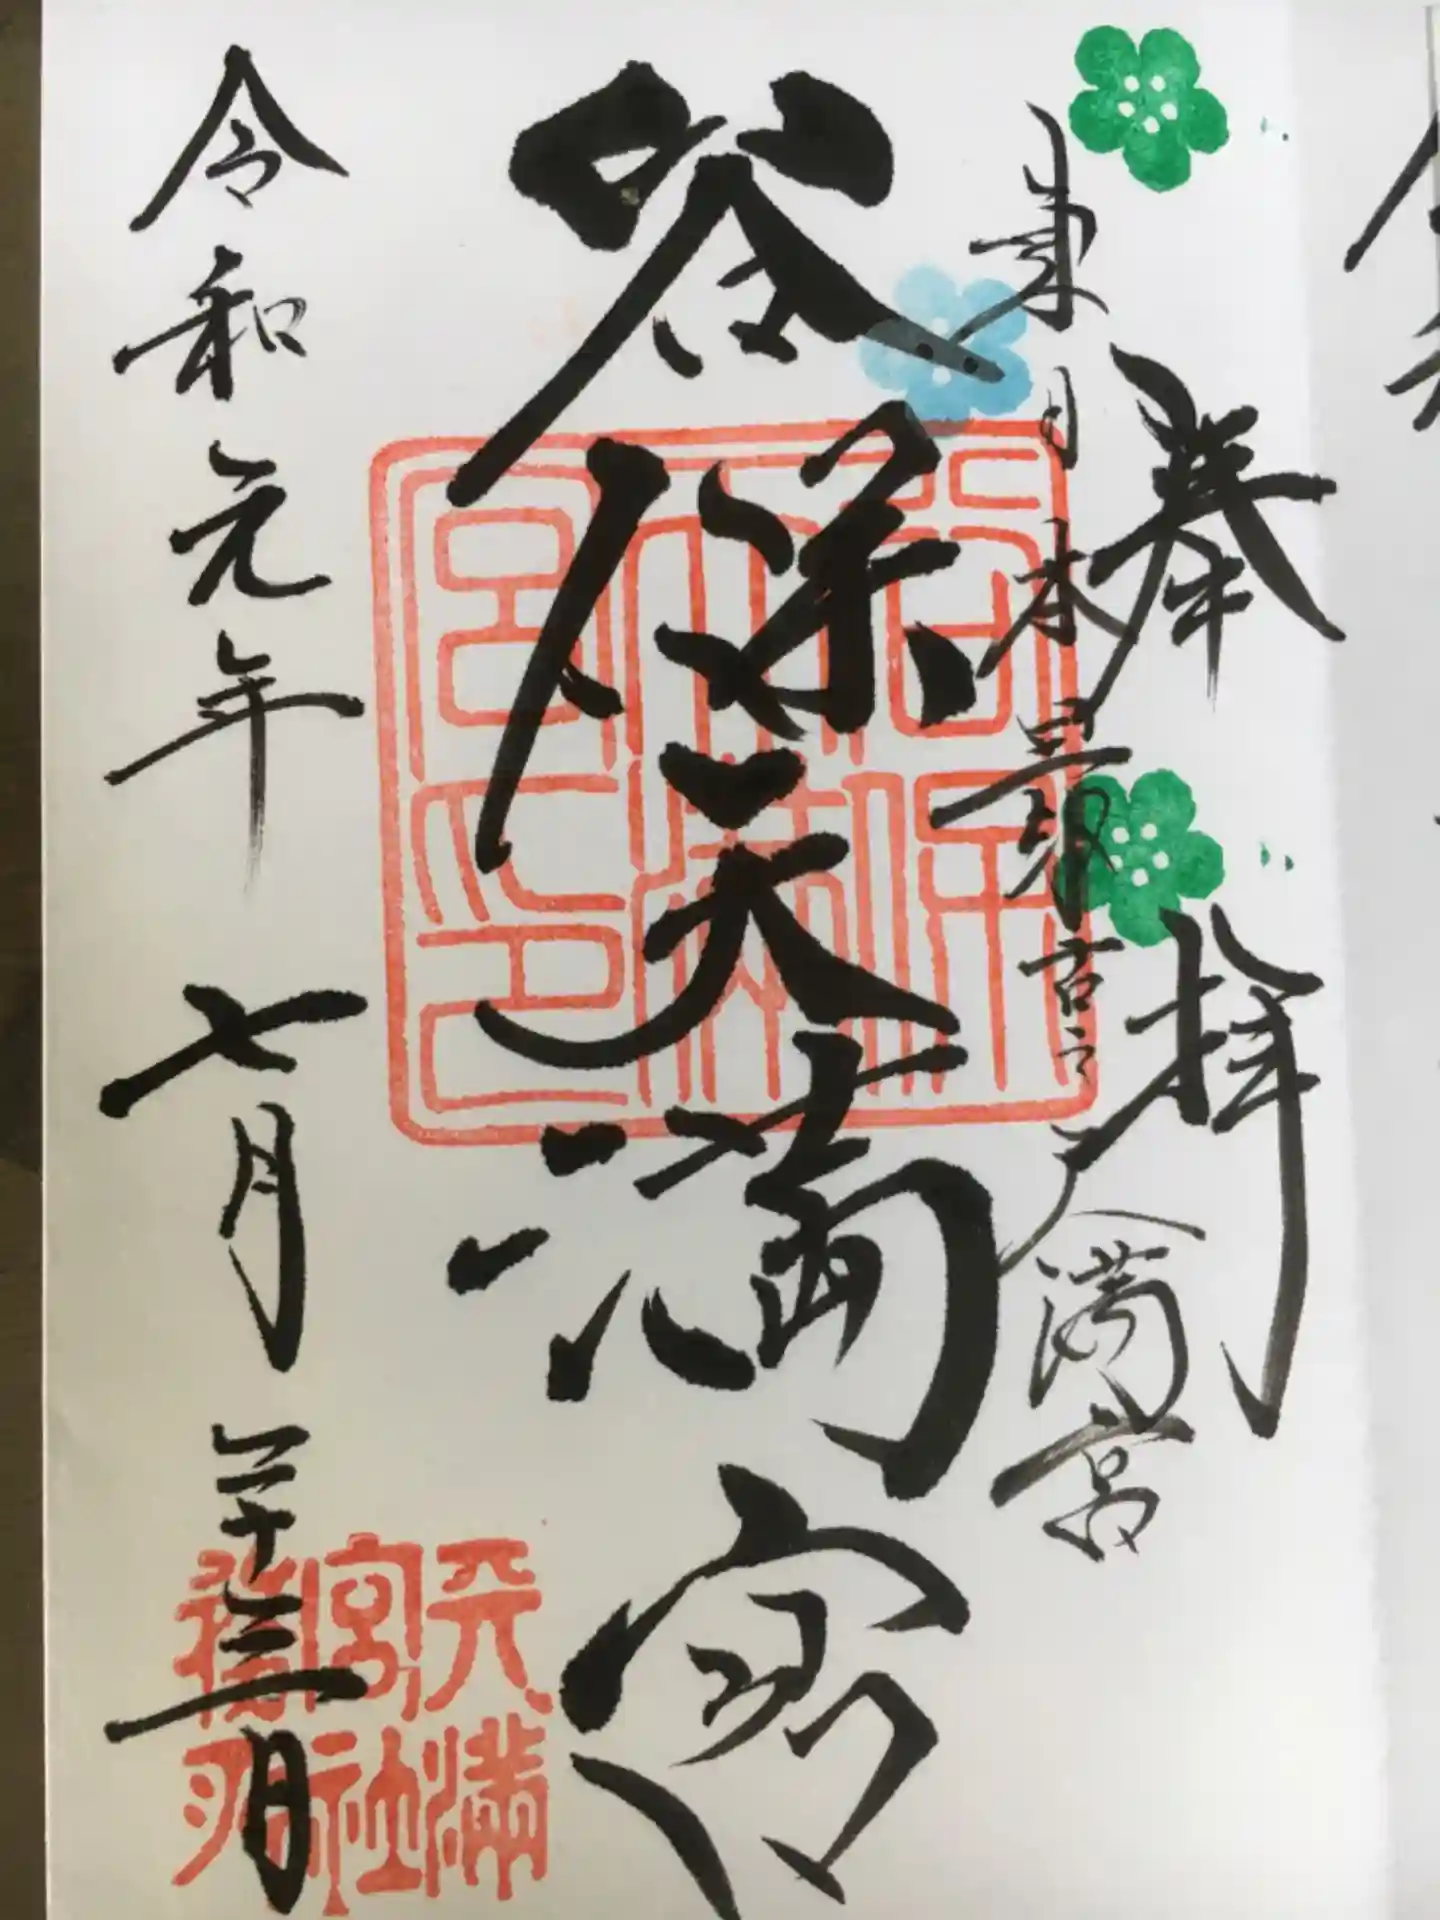 奉拝
東日本最古之天満宮
谷保天満宮
令和元年七月二十三日
谷保天満宮印
天満宮社務所